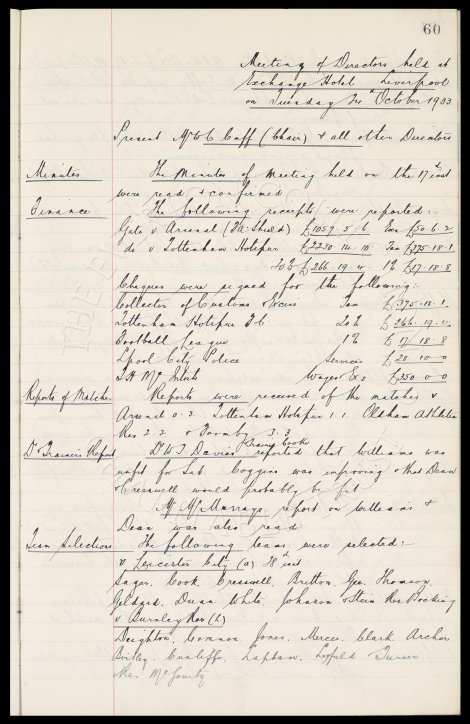 60
Meeting of Directors held at
Exchange Hotel Liverpool
on Tuesday October 1933
Present Mr W C Cuff (Chair) & all other Directors
Minutes The Minutes of Meeting held on the 17th inst
were read & confirmed
Finance The following receipts were reported:-
Gate v Arsenal (FA Shield) £1059.5.6 Tax £50.6.2
do v Tottenham Hotspur £2230.14.10 Tax £375.18.1
20% £266.19.11 1% £17.18.8
Cheques were signed for the following:-
Collector of Customs & Excise Tax £375.18.1
Tottenham Hotspur F C 20% £266.19.11
Football League 1% £17/18.8
Lpool City Police Services £28.10.0
Wages & Exs £250.0.0
Reports of Matches Reports were received of the matches v
Arsenal 0.3. Tottenham Hotspur 1.1. Oldham Athletic
Res 2.2 & Formby 3.3
Dr & Trainers Report Dr W J Davies & Trainer Cooke reported that Williams was
unfit for Sat. Coggins was improving & that Dean
& Cresswell would probably be fit
Mr McMurrays report on Williams &
Dean was also read
Team Selections The following teams were selected:-
v Leicester City (a) 28th inst
Sagar. Cook. Cresswell. Britton. Gee. Thomson.
Geldard. Dunn. White. Johnson & Stein Res Bocking
v Burnley Res (h)
Deighton. Common. Jones. Mercer. Clark Archer
Birtley. Cunliffe. Lapham. Leyfield Turner
Res McGourty